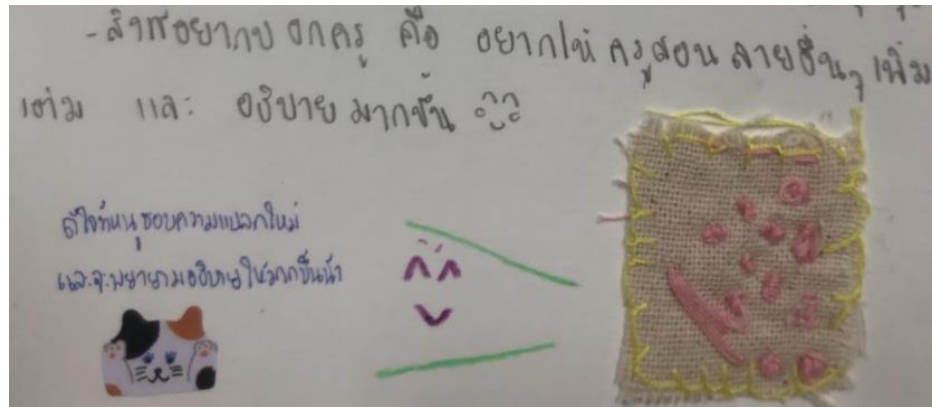 - สิ่งที่อยากบอกครู คือ อยากให้ ครูสอน ลายอื่นๆ เพิ่ม
เติม และ อธิบาย มากขึ้น
ดีใจที่หนูชอบความแปลกใหม่
และจะพยายามอธิบายให้มากขึ้นน้า